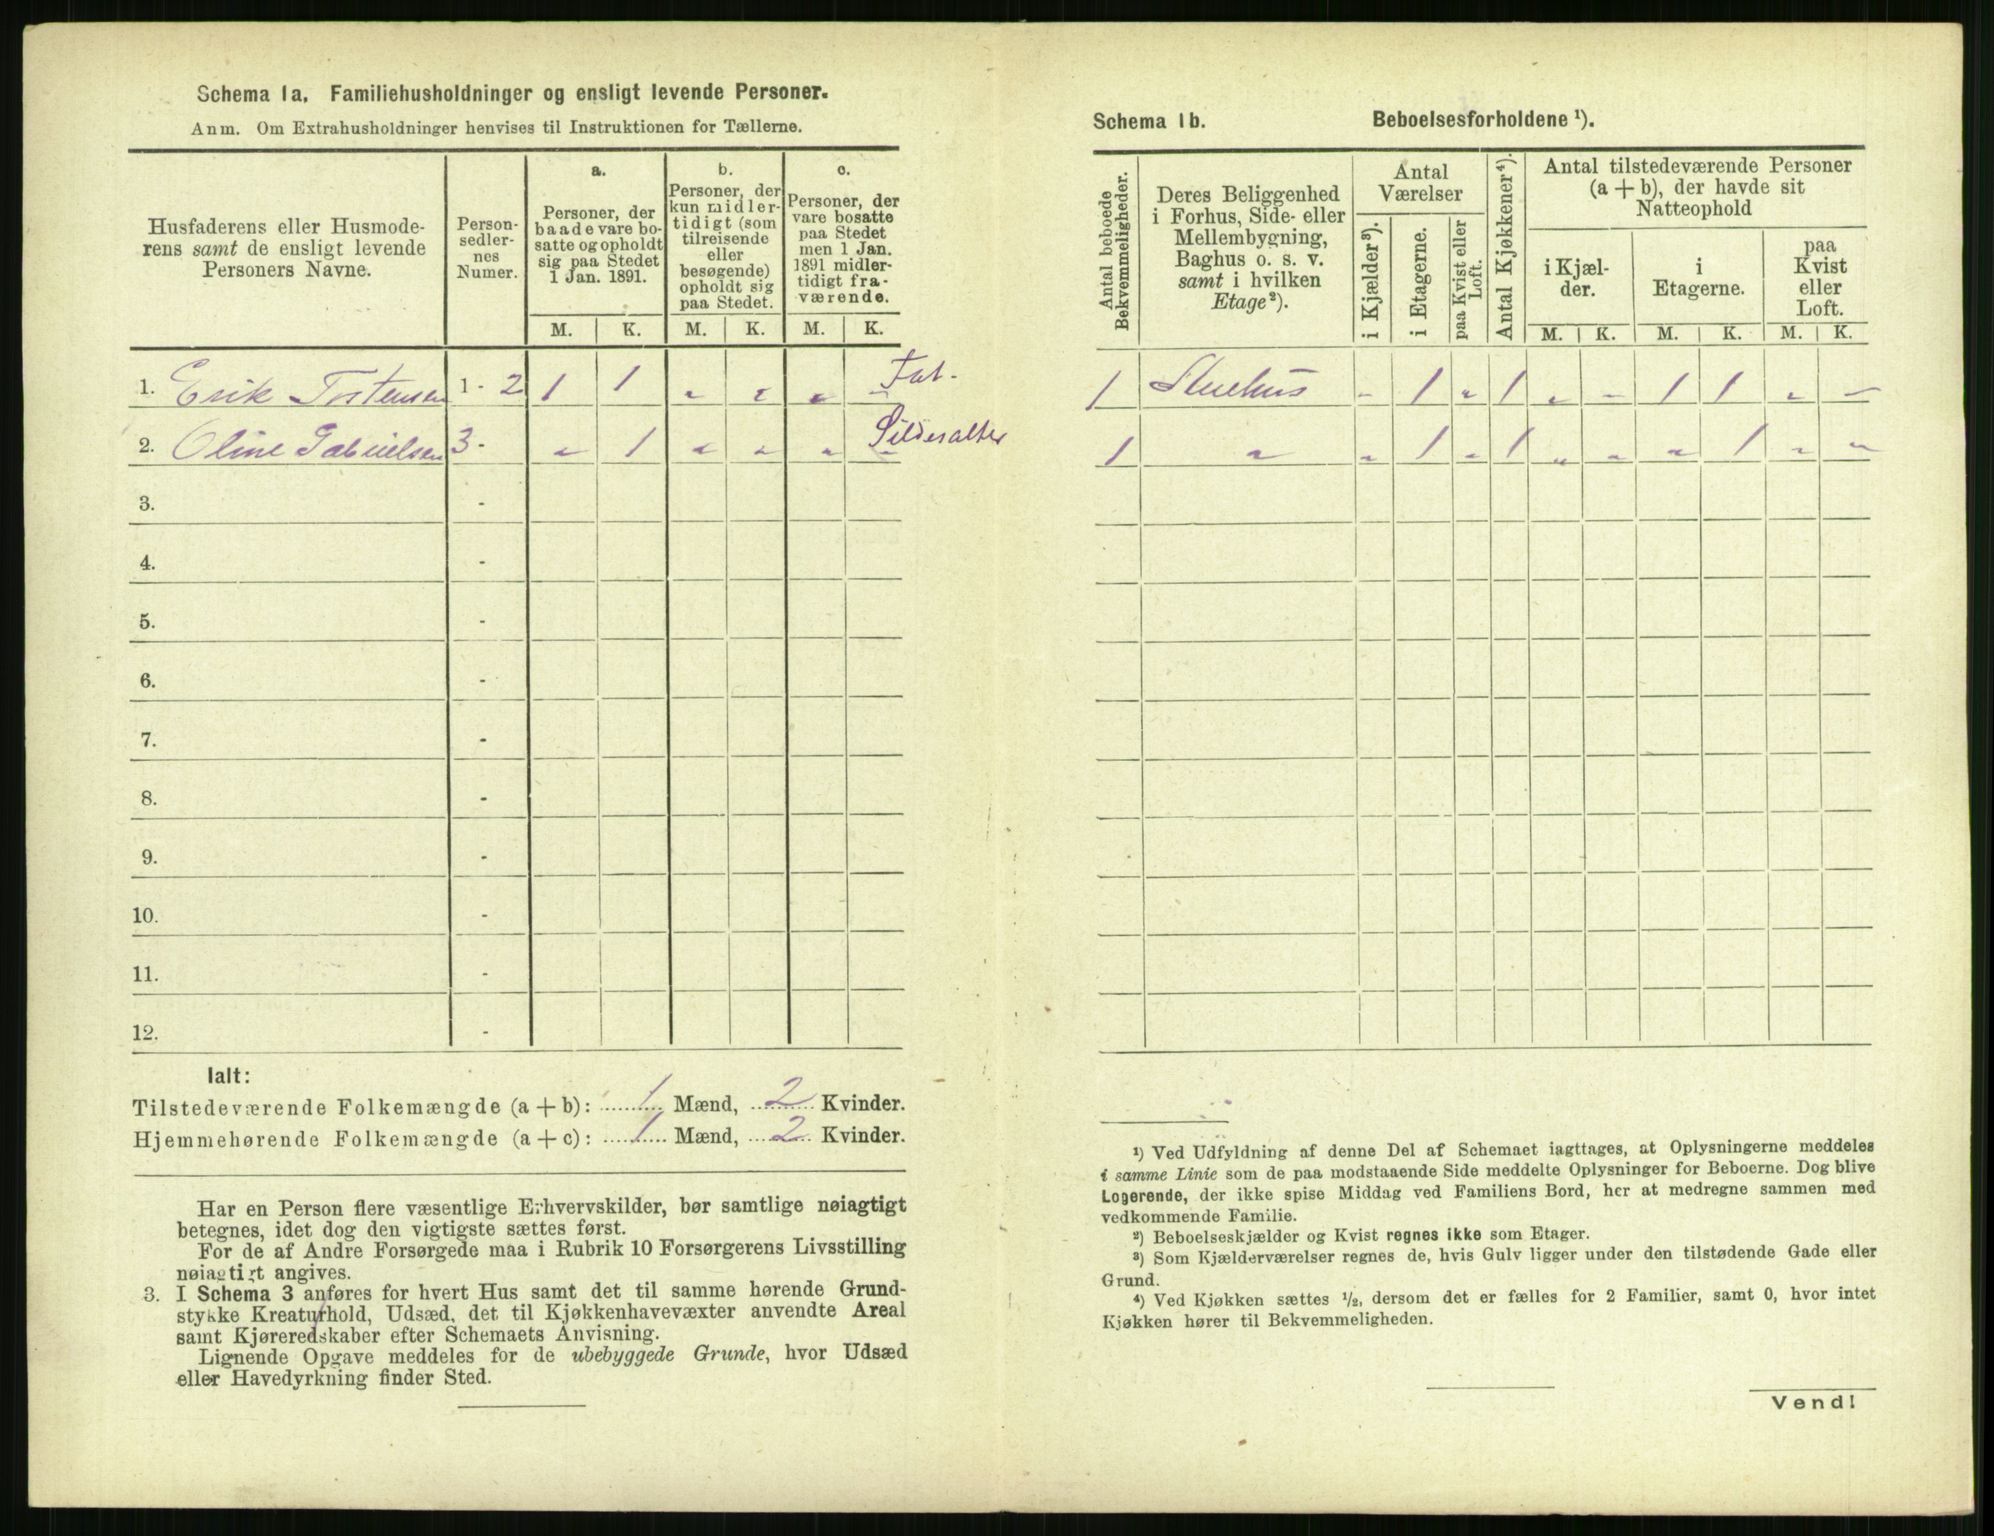 Schema 1a. Familiehusholdninger og ensligt levende Personer.
Anm. Om Extrahusholdninger henvises til Instruktionen for Tællerne.
Husfaderens eller Husmode-
rens samt de ensligt levende
Personers Navne.
Person-
sedler-
nes
Numer.
a.
Personer, der
baade vare bo-
satte og opholdt
sig paa Stedet
1 Jan. 1891.
b.
Personer, der
kun midler-
tidigt (som
tilreisende
eller
besøgende)
opholdt sig
paa Stedet.
c.
Personer, der
vare bosatte
paa Stedet
men 1 Jan.
1891 midler-
tidigt fra-
værende.
M. K. M. K. M. K.
1. Erik Torstensen 1 - 2 1 1 " " " "
2. Oline Gabrielsen 3 - " 1 " " " "
3. -
4. -
5. -
6. -
7. -
8. -
9. -
10. -
11. -
12. -
Ialt:
Tilstedeværende Folkemængde (a + b): 1 Mænd, 2 Kvinder.
Hjemmehørende Folkemængde (a + c): 1 Mænd, 2 Kvinder.
Har en Person flere væsentlige Erhvervskilder, bør samtlige nøiagtigt
betegnes, idet dog den vigtigste sættes først.
For de af Andre Forsørgede maa i Rubrik 10 Forsørgerens Livsstilling
nøiagtigt angives.
3. I Schema 3 anføres for hvert Hus samt det til samme hørende Grund-
stykke Kreaturhold, Udsæd, det til Kjøkkenhavevæxter anvendte Areal
samt Kjøreredskaber efter Schemaets Anvisning.
Lignende Opgave meddeles for de ubebyggede Grunde, hvor Udsæd
eller Havedyrkning finder Sted.
Schema 1b. Beboelsesforholdene ¹).
Antal beboede
Bekvemmeligheder.
Deres Beliggenhed
i Forhus, Side- eller
Mellembygning,
Baghus o. s. v.
samt i hvilken
Etage²).
Antal
Værelser
i Kjælder³).
i Etagerne.
paa Kvist eller
Loft.
Antal Kjøkkener⁴).
Antal tilstedeværende Personer
(a + b), der havde sit
Natteophold
i Kjæl-
der.
i
Etagerne.
paa
Kvist
eller
Loft.
M. K. M. K. M. K.
1 Stuehus - 1 " 1 " - 1 1 " -
1 " " 1 " 1 " " " 1 " "
¹) Ved Udfyldning af denne Del af Schemaet iagttages, at Oplysningerne meddeles
i samme Linie som de paa modstaaende Side meddelte Oplysninger for Beboerne. Dog blive
Logerende, der ikke spise Middag ved Familiens Bord, her at medregne sammen med
vedkommende Familie.
²) Beboelseskjælder og Kvist regnes ikke som Etager.
³) Som Kjælderværelser regnes de, hvis Gulv ligger under den tilstødende Gade eller
Grund.
⁴) Ved Kjøkken sættes ½, dersom det er fælles for 2 Familier, samt 0, hvor intet
Kjøkken hører til Bekvemmeligheden.
Vend!